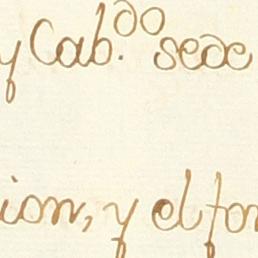 y Cab.do sede
ion, y el for